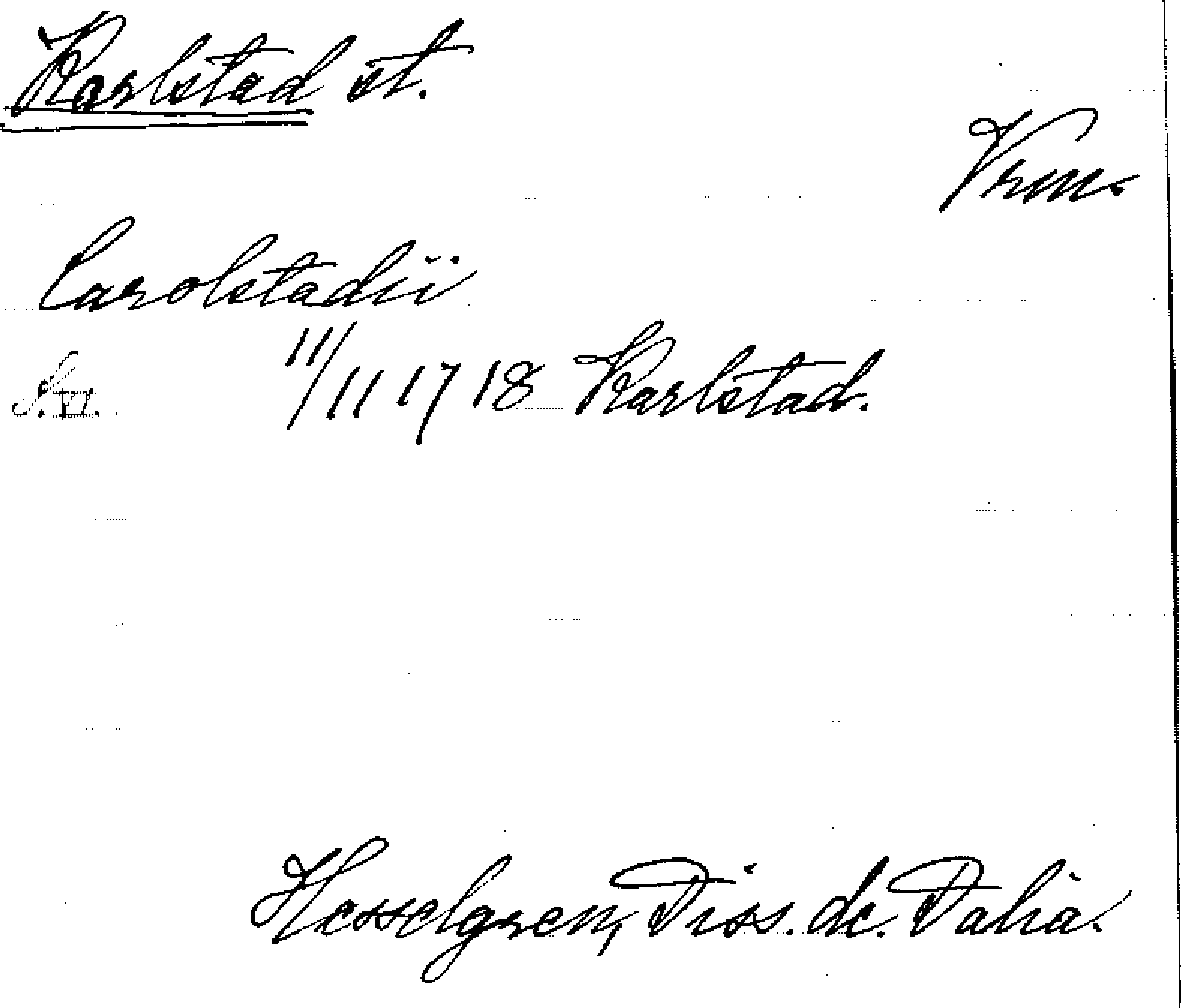 Karlstad st.
Vrm.
Carolstadii
S. VI. 11/11 1718 Karlstad.
Hesselgren, Diss. de. Dalia.